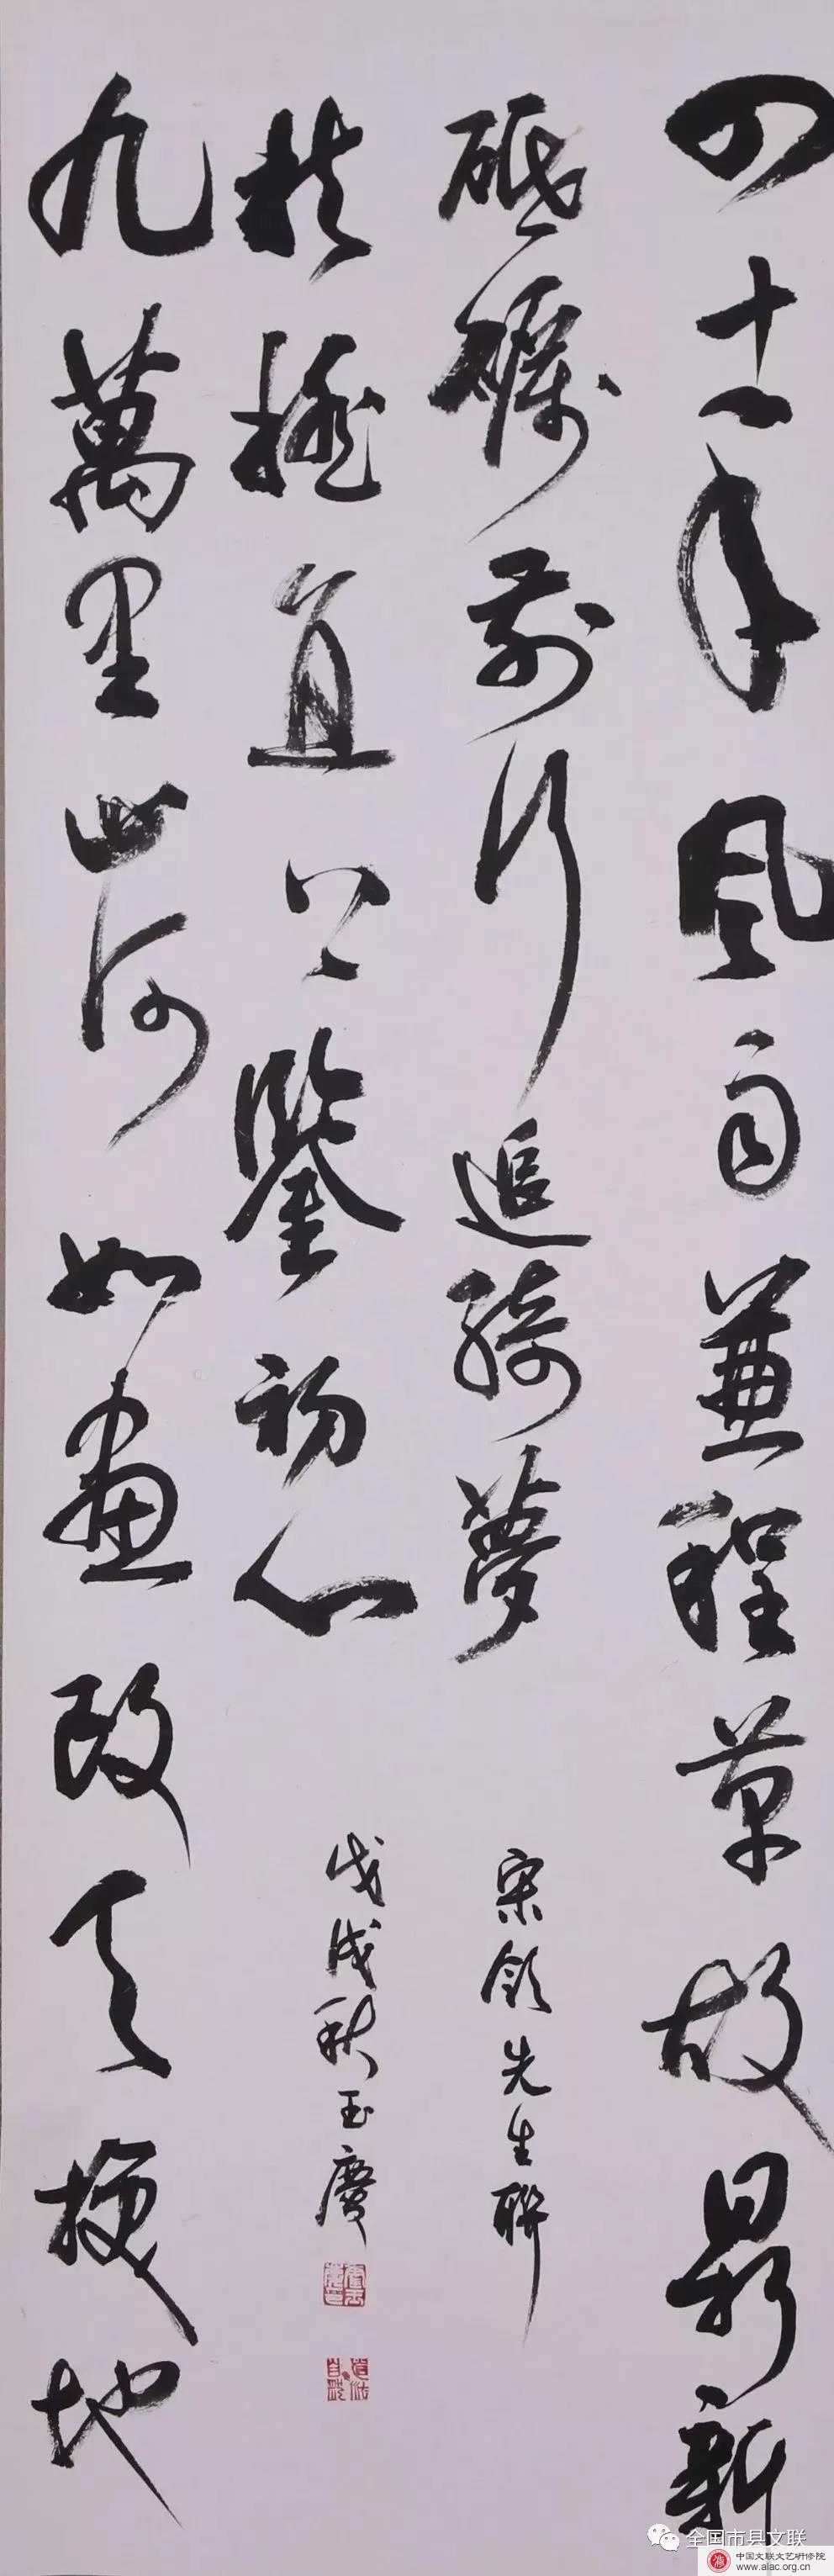 四十年風雨兼程革故鼎新
砥礪前行追綺夢
九萬里山河如畫改天換地
扶搖直上鑒初心
宋 先生聯
戊戌秋玉慶
道法自然
全国市县文联
中国文联文艺研修院
www.alac.org.cn